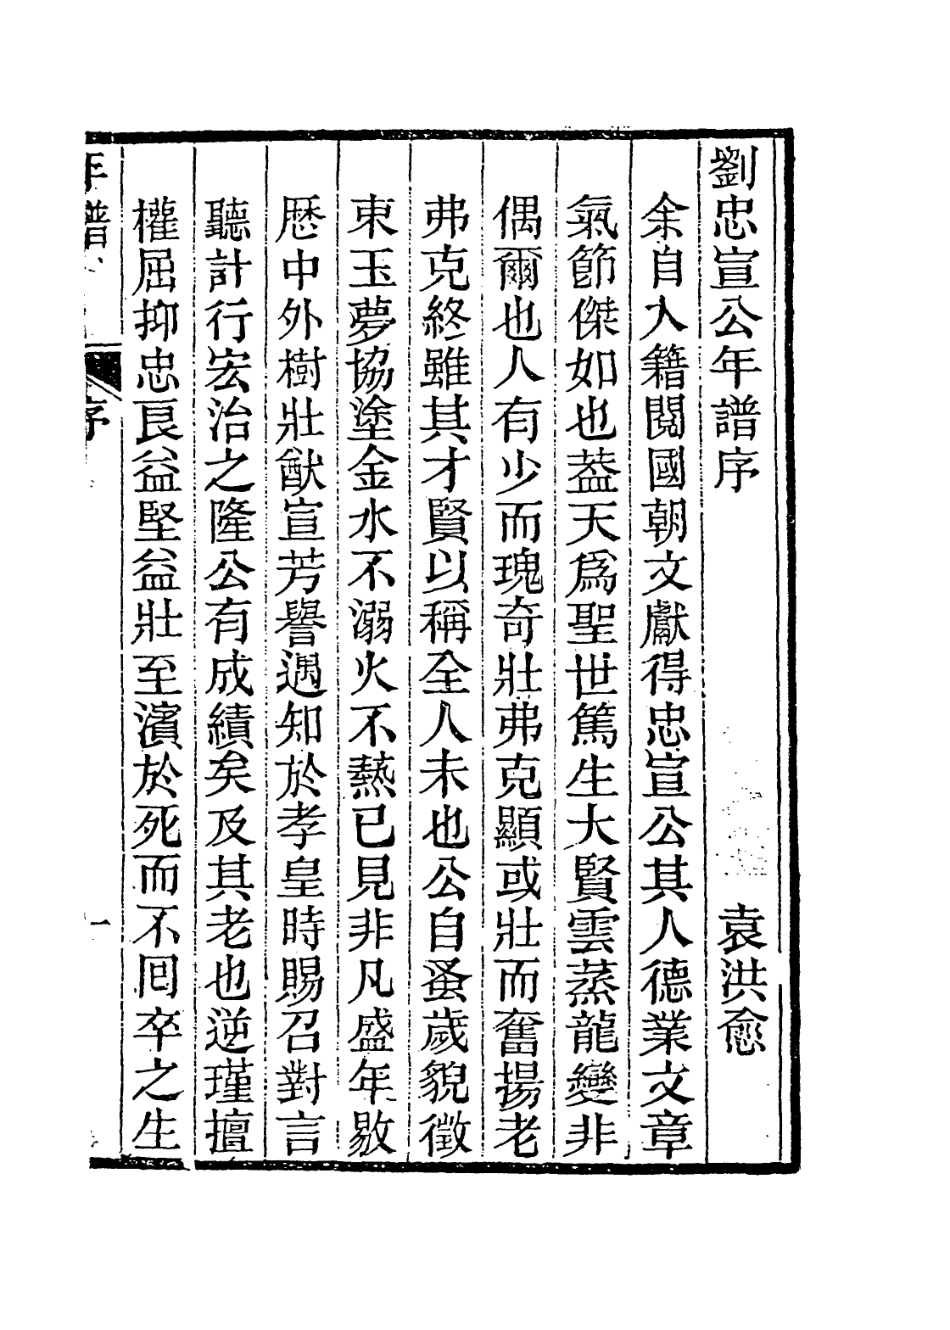 劉忠宣公年譜序
袁洪愈
余自入籍閱國朝文獻得忠宣公其人德業文章
氣節傑如也葢天爲聖世篤生大賢雲蒸龍變非
偶爾也人有少而瑰奇壯弗克顯或壯而奮揚老
弗克終雖其才賢以稱全人未也公自蚤歲貌徵
東玉夢協塗金水不溺火不熱已見非凡盛年敭
歷中外樹壯猷宣芳譽遇知於孝皇時賜召對言
聽計行宏治之隆公有成績矣及其老也逆瑾擅
權屈抑忠良益堅益壯至濱於死而不囘卒之生
年譜
序
一